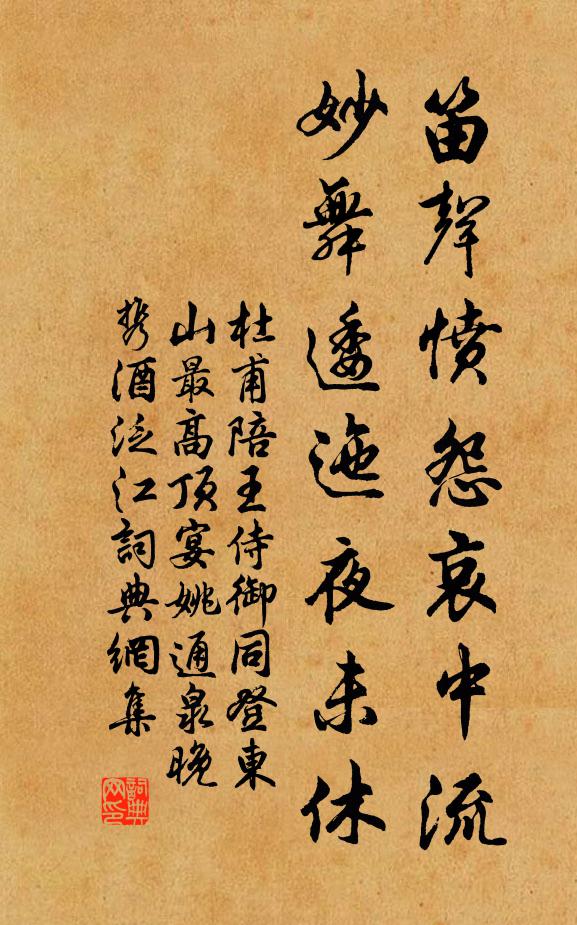 笛聲憤怨哀中流
妙舞逶迤夜未休
杜甫陪王侍御同登東
山最高頂宴姚通泉晚
攜酒泛江詞典網集
詞典
网印